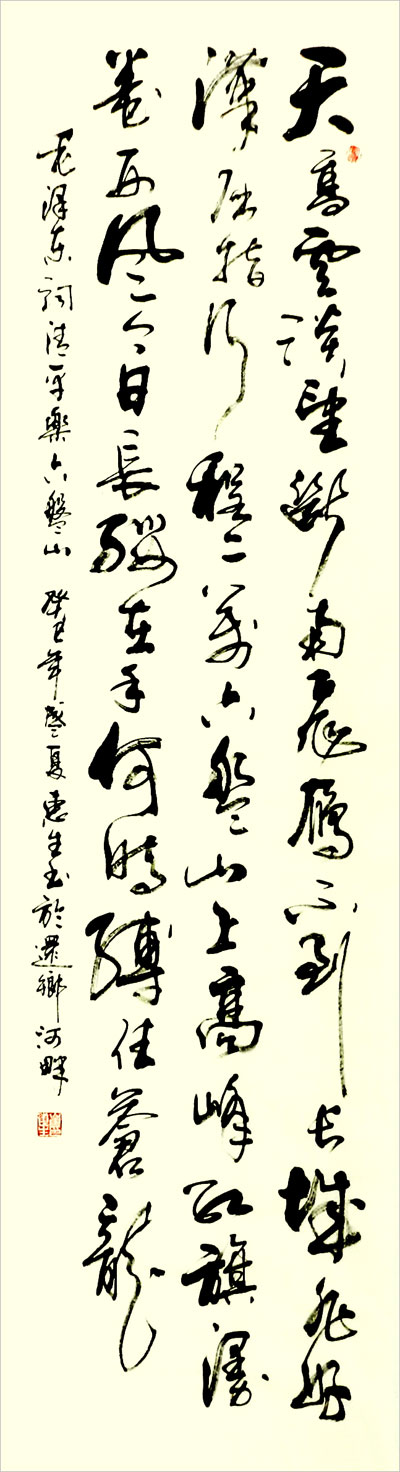 天高雲淡望斷南飛雁不到长城非好
漢屈指行程二萬六盤山上高峰红旗漫
卷西风今日長缨在手何時縛住蒼龍
毛澤东詞清平樂六盤山 癸巳年盛夏惠生书於還鄉河畔